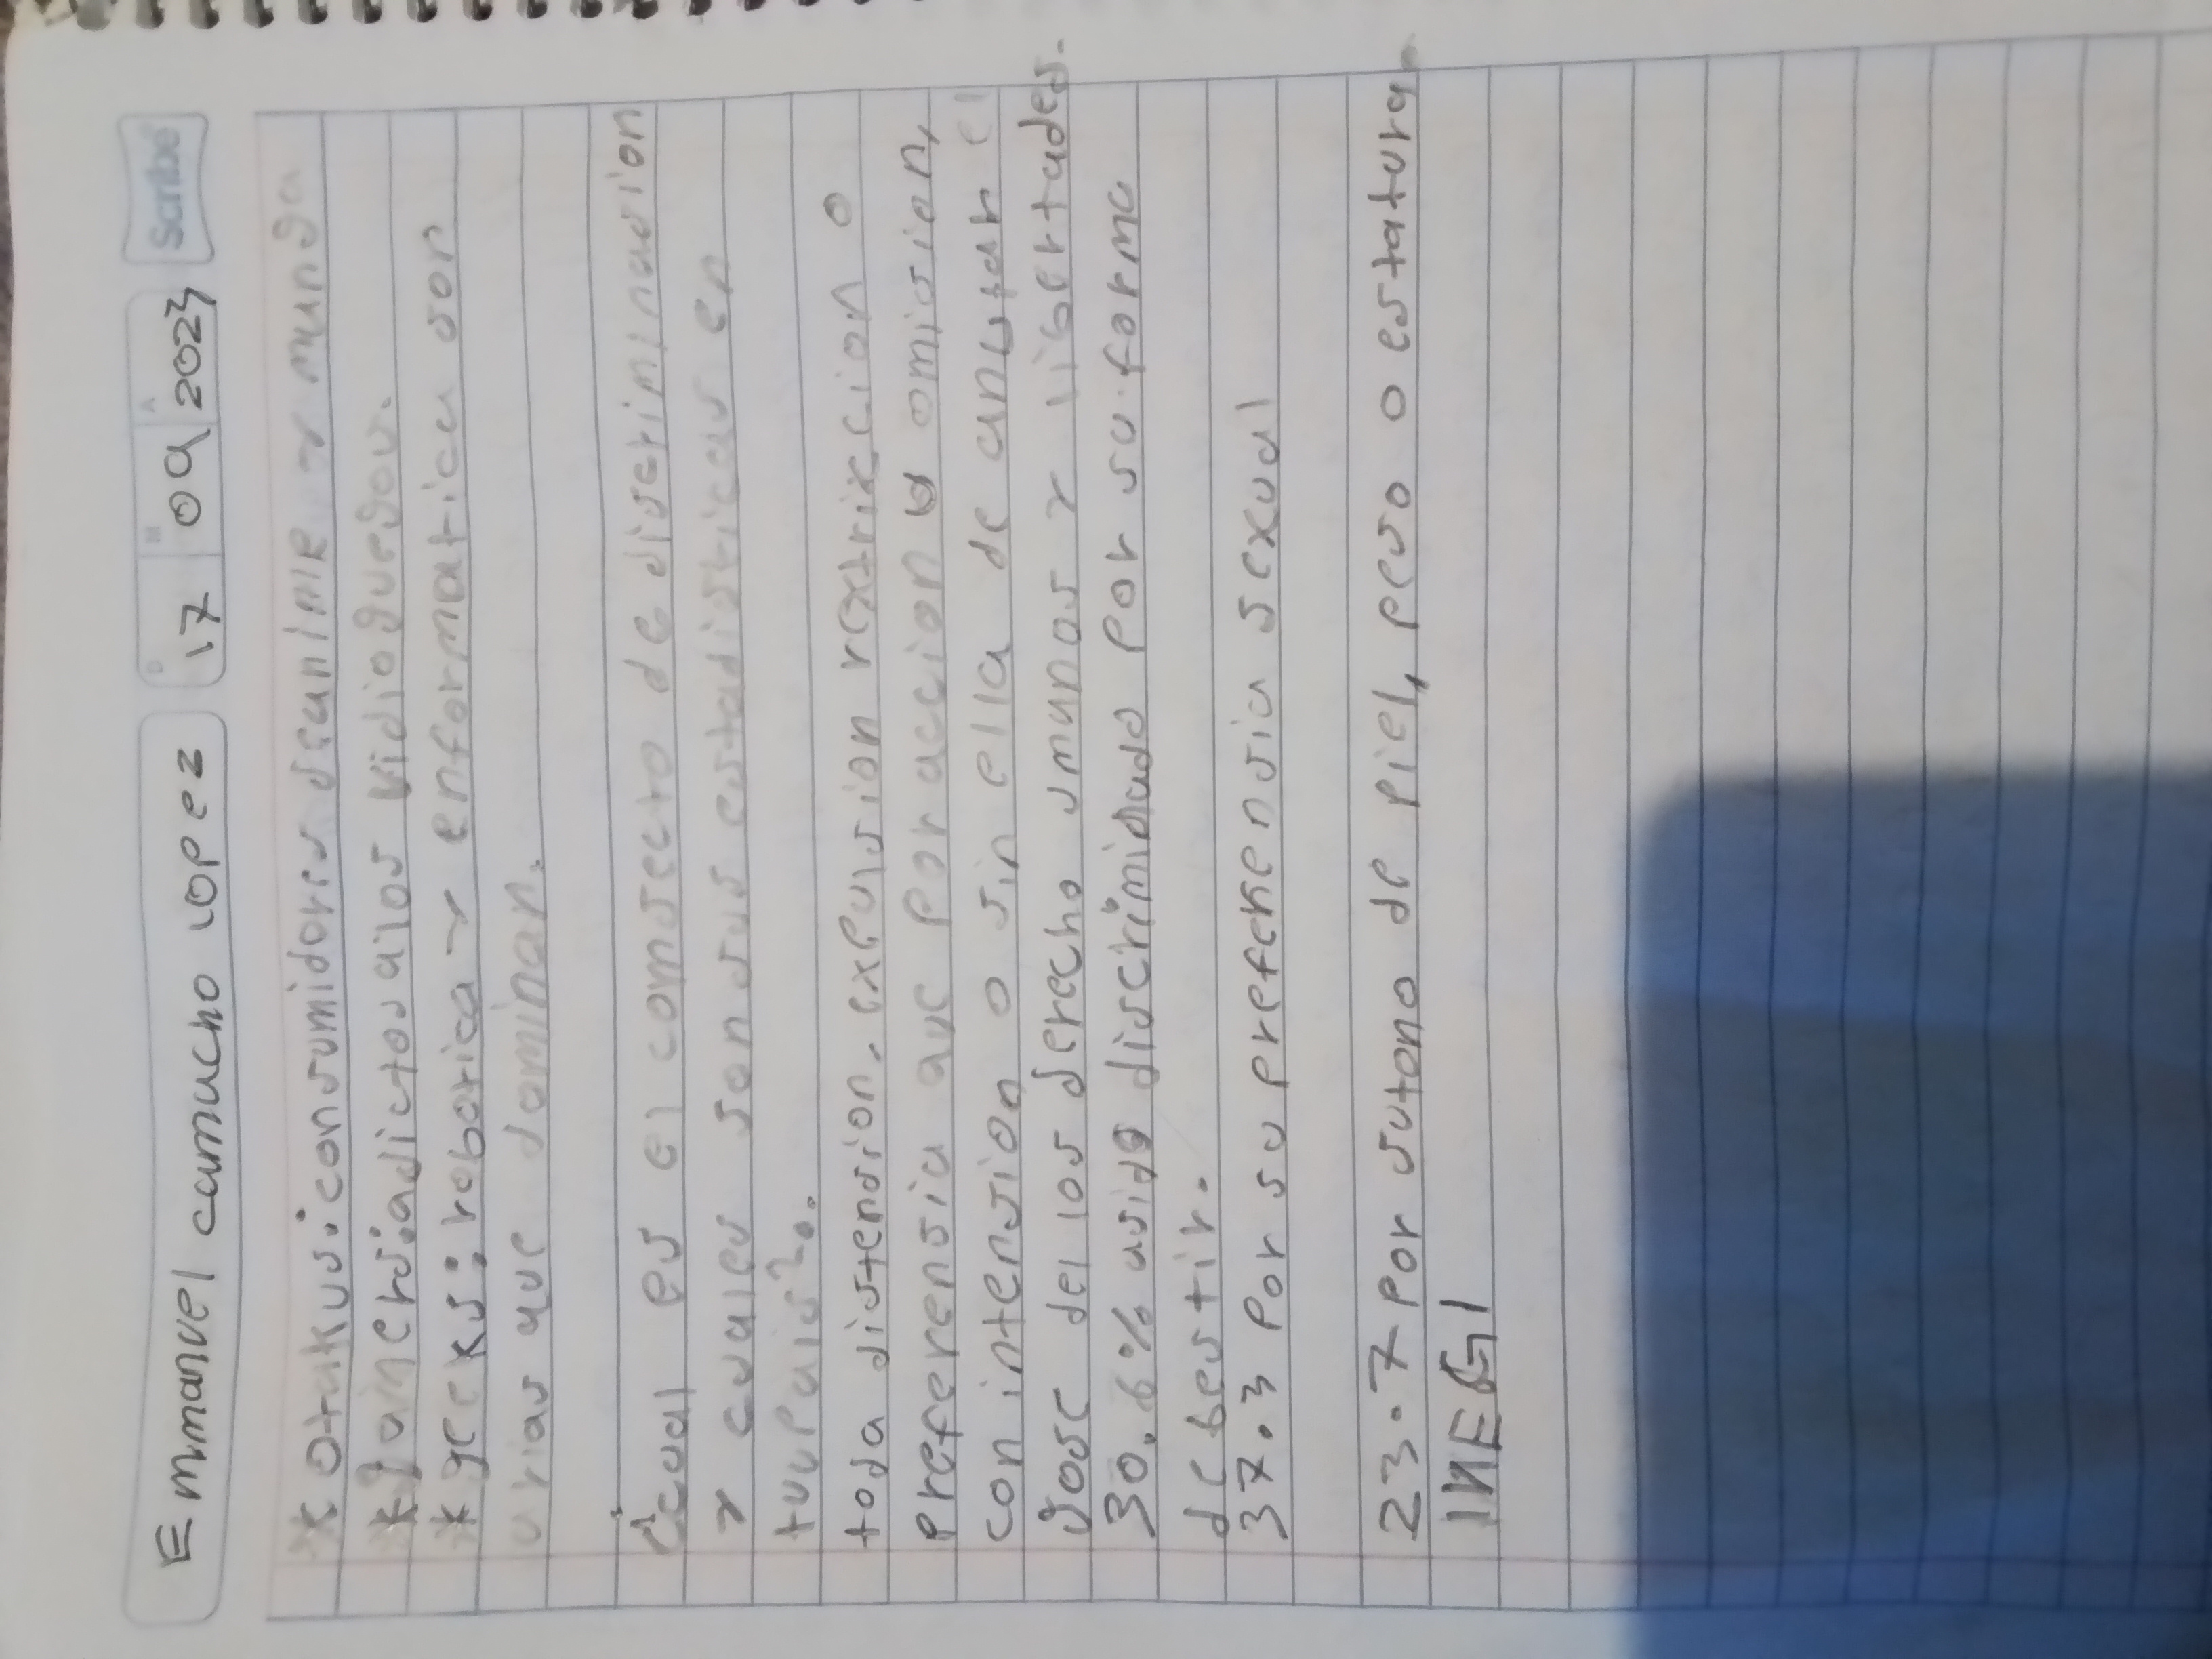 Emmanuel camacho lopez 17 09 2023 Scribe
D M A
* otakus: consumidores de anime y manga
* gamers: adictos a los vidiogueos.
* geeks: robotica y enformatica son
arias que dominan.
¿cual es el consecto de discriminasion
y cuales son sus estadisticas en
tuu Pais?.
toda distension, expulsion rextrixcion o
preferensia que por accion u omision,
con intension o sin ella de anular el
Josc del los derecho smanos y libertades.
30.6% asido discriminado por su forma
de bestir.
37.3 por su preferensia sexual
23.7 por sutono de piel, peso o estatura.
INEGI